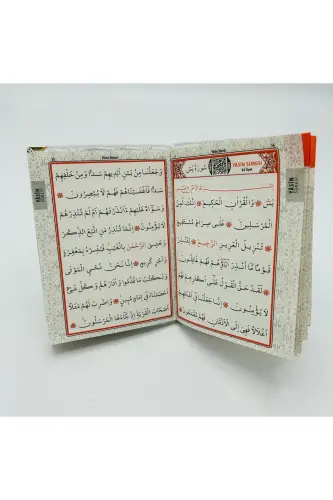 YASİN SURESİ
83 Ayet
سُورَةُ يٰسٓ
يٰسٓ وَالْقُرْاٰنِ الْحَكِيمِ اِنَّكَ لَمِنَ
الْمُرْسَلِينَ عَلٰى صِرَاطٍ مُسْتَقِيمٍ
تَنْزِيلَ الْعَزِيزِ الرَّحِيمِ لِتُنْذِرَ
قَوْمًا مَا اُنْذِرَ اٰبَاؤُهُمْ فَهُمْ غَافِلُونَ
لَقَدْ حَقَّ الْقَوْلُ عَلٰى اَكْثَرِهِمْ فَهُمْ
لَا يُؤْمِنُونَ اِنَّا جَعَلْنَا فِى اَعْنَاقِهِمْ
اَغْلَالًا فَهِىَ اِلَى الْاَذْقَانِ فَهُمْ مُقْمَحُونَ
YASİN
وَجَعَلْنَا مِنْ بَيْنِ اَيْدِيهِمْ سَدًّا وَمِنْ خَلْفِهِمْ
سَدًّا فَاَغْشَيْنَاهُمْ فَهُمْ لَا يُبْصِرُونَ
وَسَوَاءٌ عَلَيْهِمْ ءَاَنْذَرْتَهُمْ اَمْ لَمْ تُنْذِرْهُمْ
لَا يُؤْمِنُونَ اِنَّمَا تُنْذِرُ مَنِ اتَّبَعَ الذِّكْرَ
وَخَشِىَ الرَّحْمٰنَ بِالْغَيْبِ فَبَشِّرْهُ بِمَغْفِرَةٍ
وَاَجْرٍ كَرِيمٍ اِنَّا نَحْنُ نُحْيِى الْمَوْتٰى
وَنَكْتُبُ مَا قَدَّمُوا وَاٰثَارَهُمْ وَكُلَّ شَىْءٍ
اَحْصَيْنَاهُ فِى اِمَامٍ مُبِينٍ وَاضْرِبْ لَهُمْ مَثَلًا
اَصْحَابَ الْقَرْيَةِ اِذْ جَاءَهَا الْمُرْسَلُونَ
YASİN